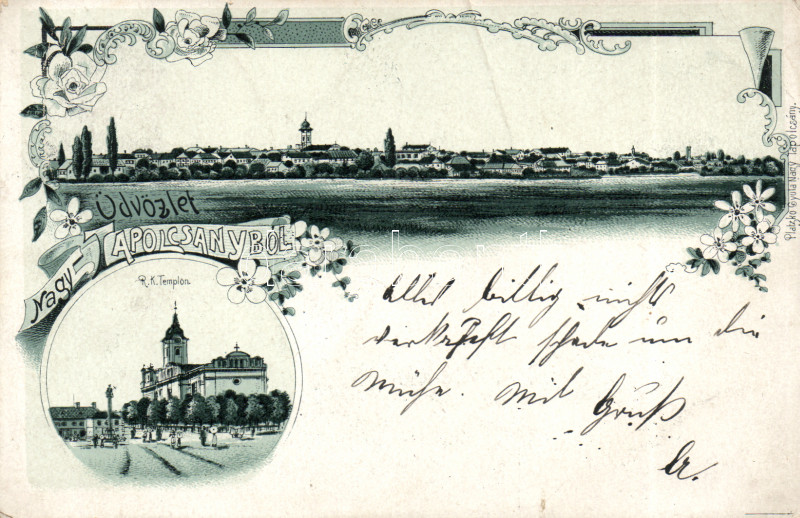 Üdvözlet
Nagy TAPOLCSANYBÓL
R. K. Templon.
Platzko Gyula Nagy Tapolcsány.
alles billig nichts
verkauft schade um die
Mühe. Mit Gruß